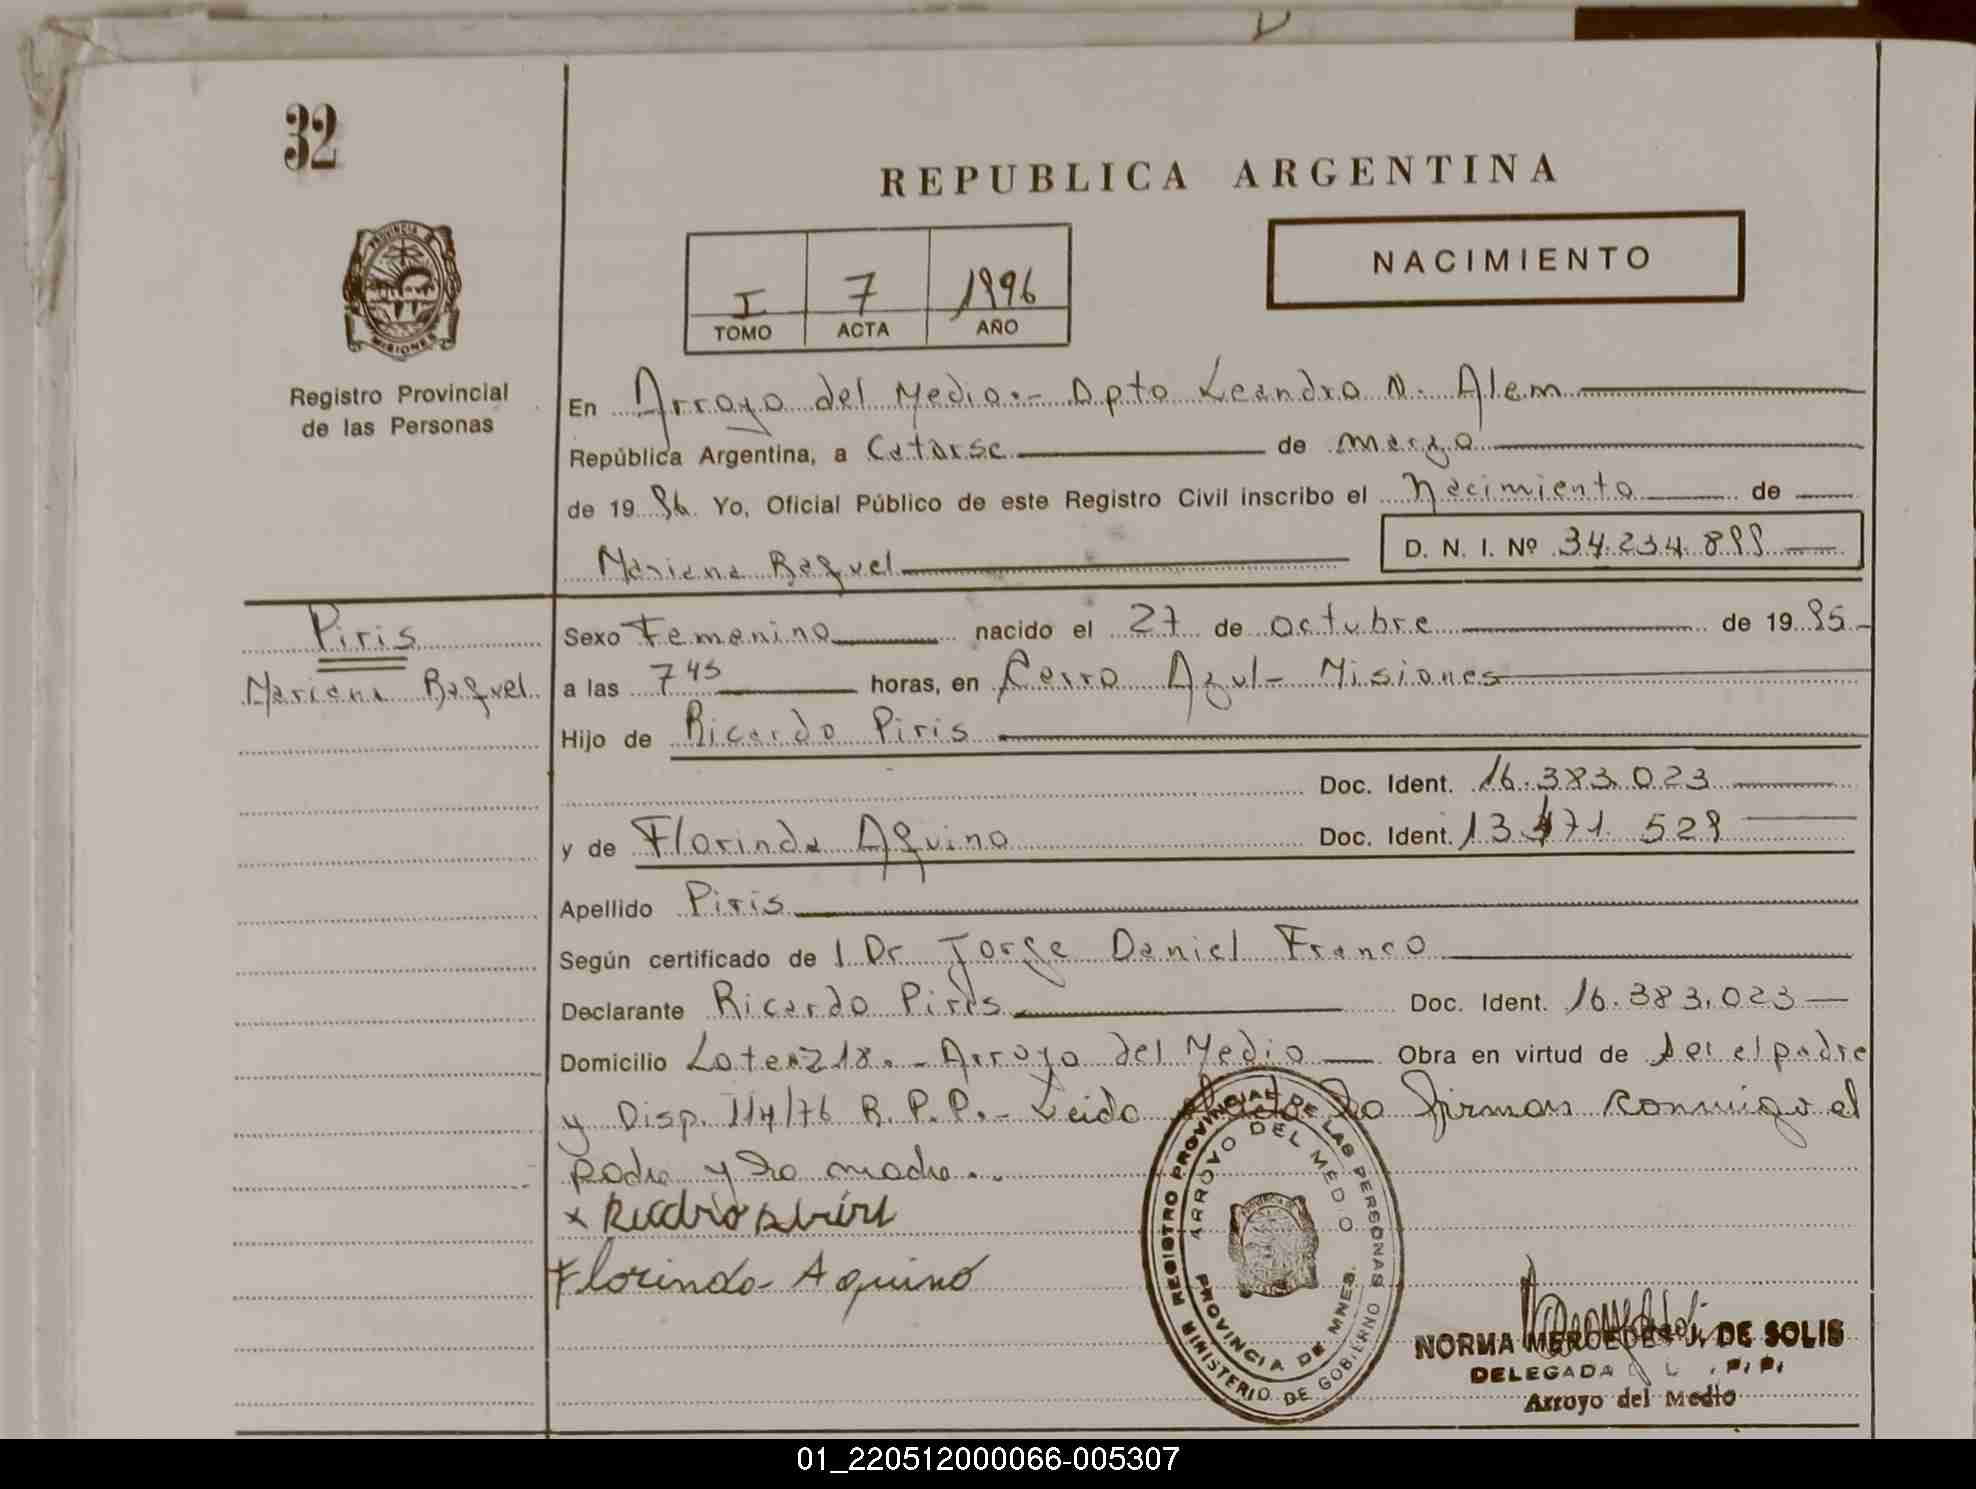 32
REPUBLICA ARGENTINA
NACIMIENTO
I 7 1996
TOMO ACTA AÑO
PROVINCIA D
MISIONES
Registro Provincial
de las Personas
En Arroyo del Medio.- Dpto Leandro N. Alem
República Argentina, a Catorse de marzo
de 19 86 Yo, Oficial Público de este Registro Civil inscribo el Nacimiento de
Mariana Raquel D. N. I. Nº 34.234.899
Piris
Mariana Raquel
Sexo Femenino nacido el 27 de octubre de 19 95
a las 7 45 horas, en Cerro Azul - Misiones
Hijo de Ricardo Piris
Doc. Ident. 16.383.023
y de Florinda Aquino Doc. Ident. 13 471 529
Apellido Piris
Según certificado de l Dr Jorge Daniel Franco
Declarante Ricardo Piris Doc. Ident. 16.383.023
Domicilio Lote 218.- Arroyo del Medio Obra en virtud de ser el padre
y Disp. 114/76 R.P.P.- Leido el acta la firman conmigo el
padre y la madre..
x
Florinda Aquino
REGISTRO PROVINCIAL DE LAS PERSONAS
MINISTERIO DE GOBIERNO
ARROYO DEL MEDIO
PROVINCIA DE MNES.
NORMA MERCEDES J. DE SOLIS
DELEGADA
Arroyo del Medio
01_220512000066-005307